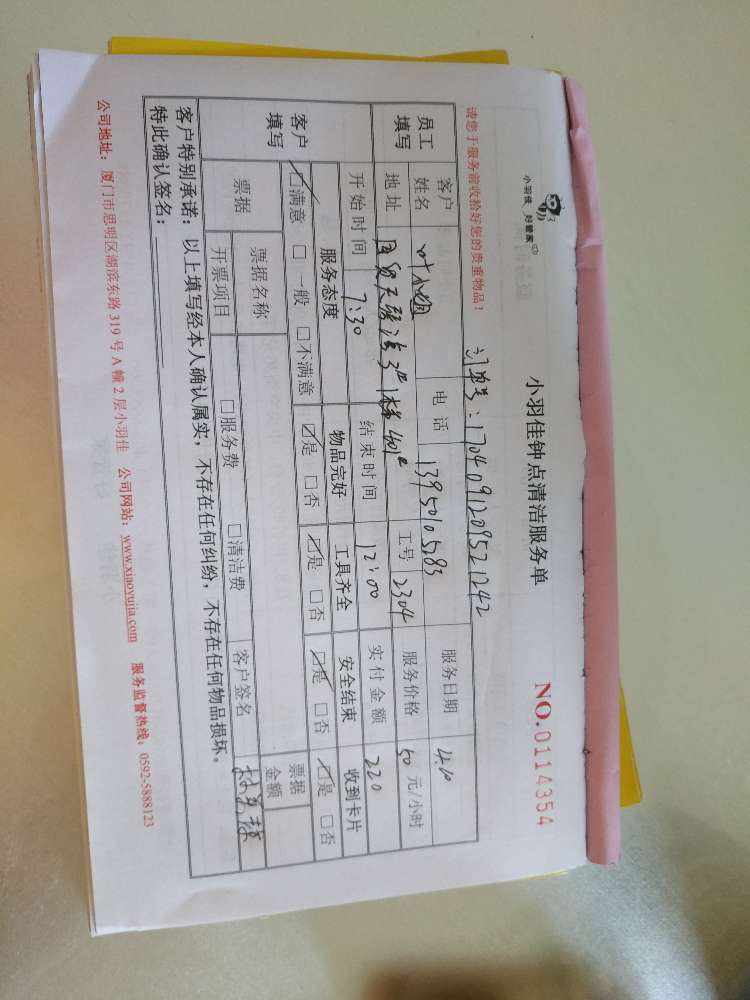 小羽佳 好管家
小羽佳钟点清洁服务单
NO.0114354
请您于服务前收拾好您的贵重物品！
订单号：1704091209521242
员工填写
客户姓名 叶小姐 电话 13950105183 服务日期 4.10
地址 3# 401# 工号 2304 服务价格 50 元/小时
开始时间 7:30 结束时间 12:00 实付金额 220
客户填写
服务态度 物品完好 工具齐全 安全结束 收到卡片
☑满意 □一般 □不满意 ☑是 □否 ☑是 □否 ☑是 □否 ☑是 □否
票据 票据名称 票据金额
开票项目 □服务费 □清洁费 客户签名
客户特别承诺：以上填写经本人确认属实，不存在任何纠纷，不存在任何物品损坏。
特此确认签名：
公司地址：厦门市思明区湖滨东路 319 号 A 幢 2 层小羽佳 公司网站：www.xiaoyujia.com 服务监督热线：0592-5888123